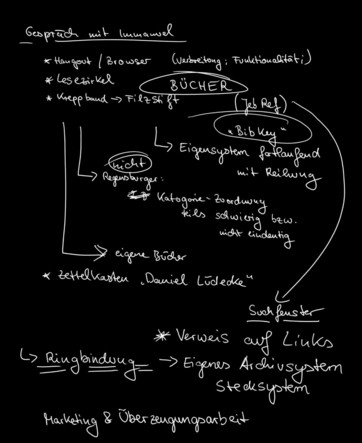 Gespräch mit Immanuel
* Hangout / Browser (Verbreitung; Funktionalität;)
* Lesezirkel
BÜCHER
* Kreppband → Filzstift (Jab Ref)
"BibKey"
→ Eigensystem fortlaufend
mit Reihung
nicht
→ Regensburger:
Kategorie-Zuordnung
teils schwierig bzw.
nicht eindeutig
→ eigene Bücher
* Zettelkasten „Daniel Lüdecke"
Suchfenster
* Verweis auf Links
↳ Ringbindung → Eigenes Archivsystem
Stecksystem
Marketing & Überzeugungsarbeit